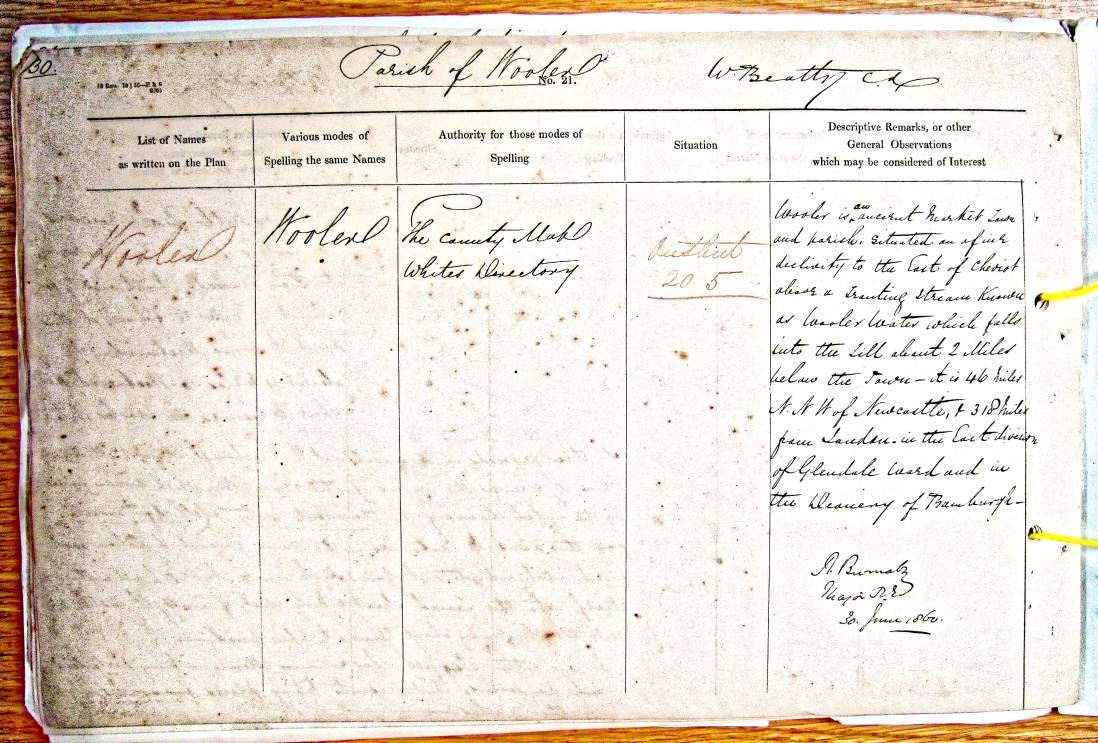 30.
Parish of Wooler
No. 21.
W. Beatty C.A
List of Names
as written on the Plan
Various modes of
Spelling the same Names
Authority for those modes of
Spelling
Situation
Descriptive Remarks, or other
General Observations
which may be considered of Interest
Wooler
Wooler
The County Map
Whites Directory
20 5
Wooler is an ancient Market Town
and parish. Situated on a fine
declivity to the East of Cheviot
above a Trouting Stream Known
as Wooler Water which falls
into the Till about 2 Miles
below the Town - it is 46 Miles
N. N W of Newcastle, & 318 Miles
from London. in the East division
of Glendale Ward and in
the Deanery of Bamburgh -
Major R.E
30. June 1860.